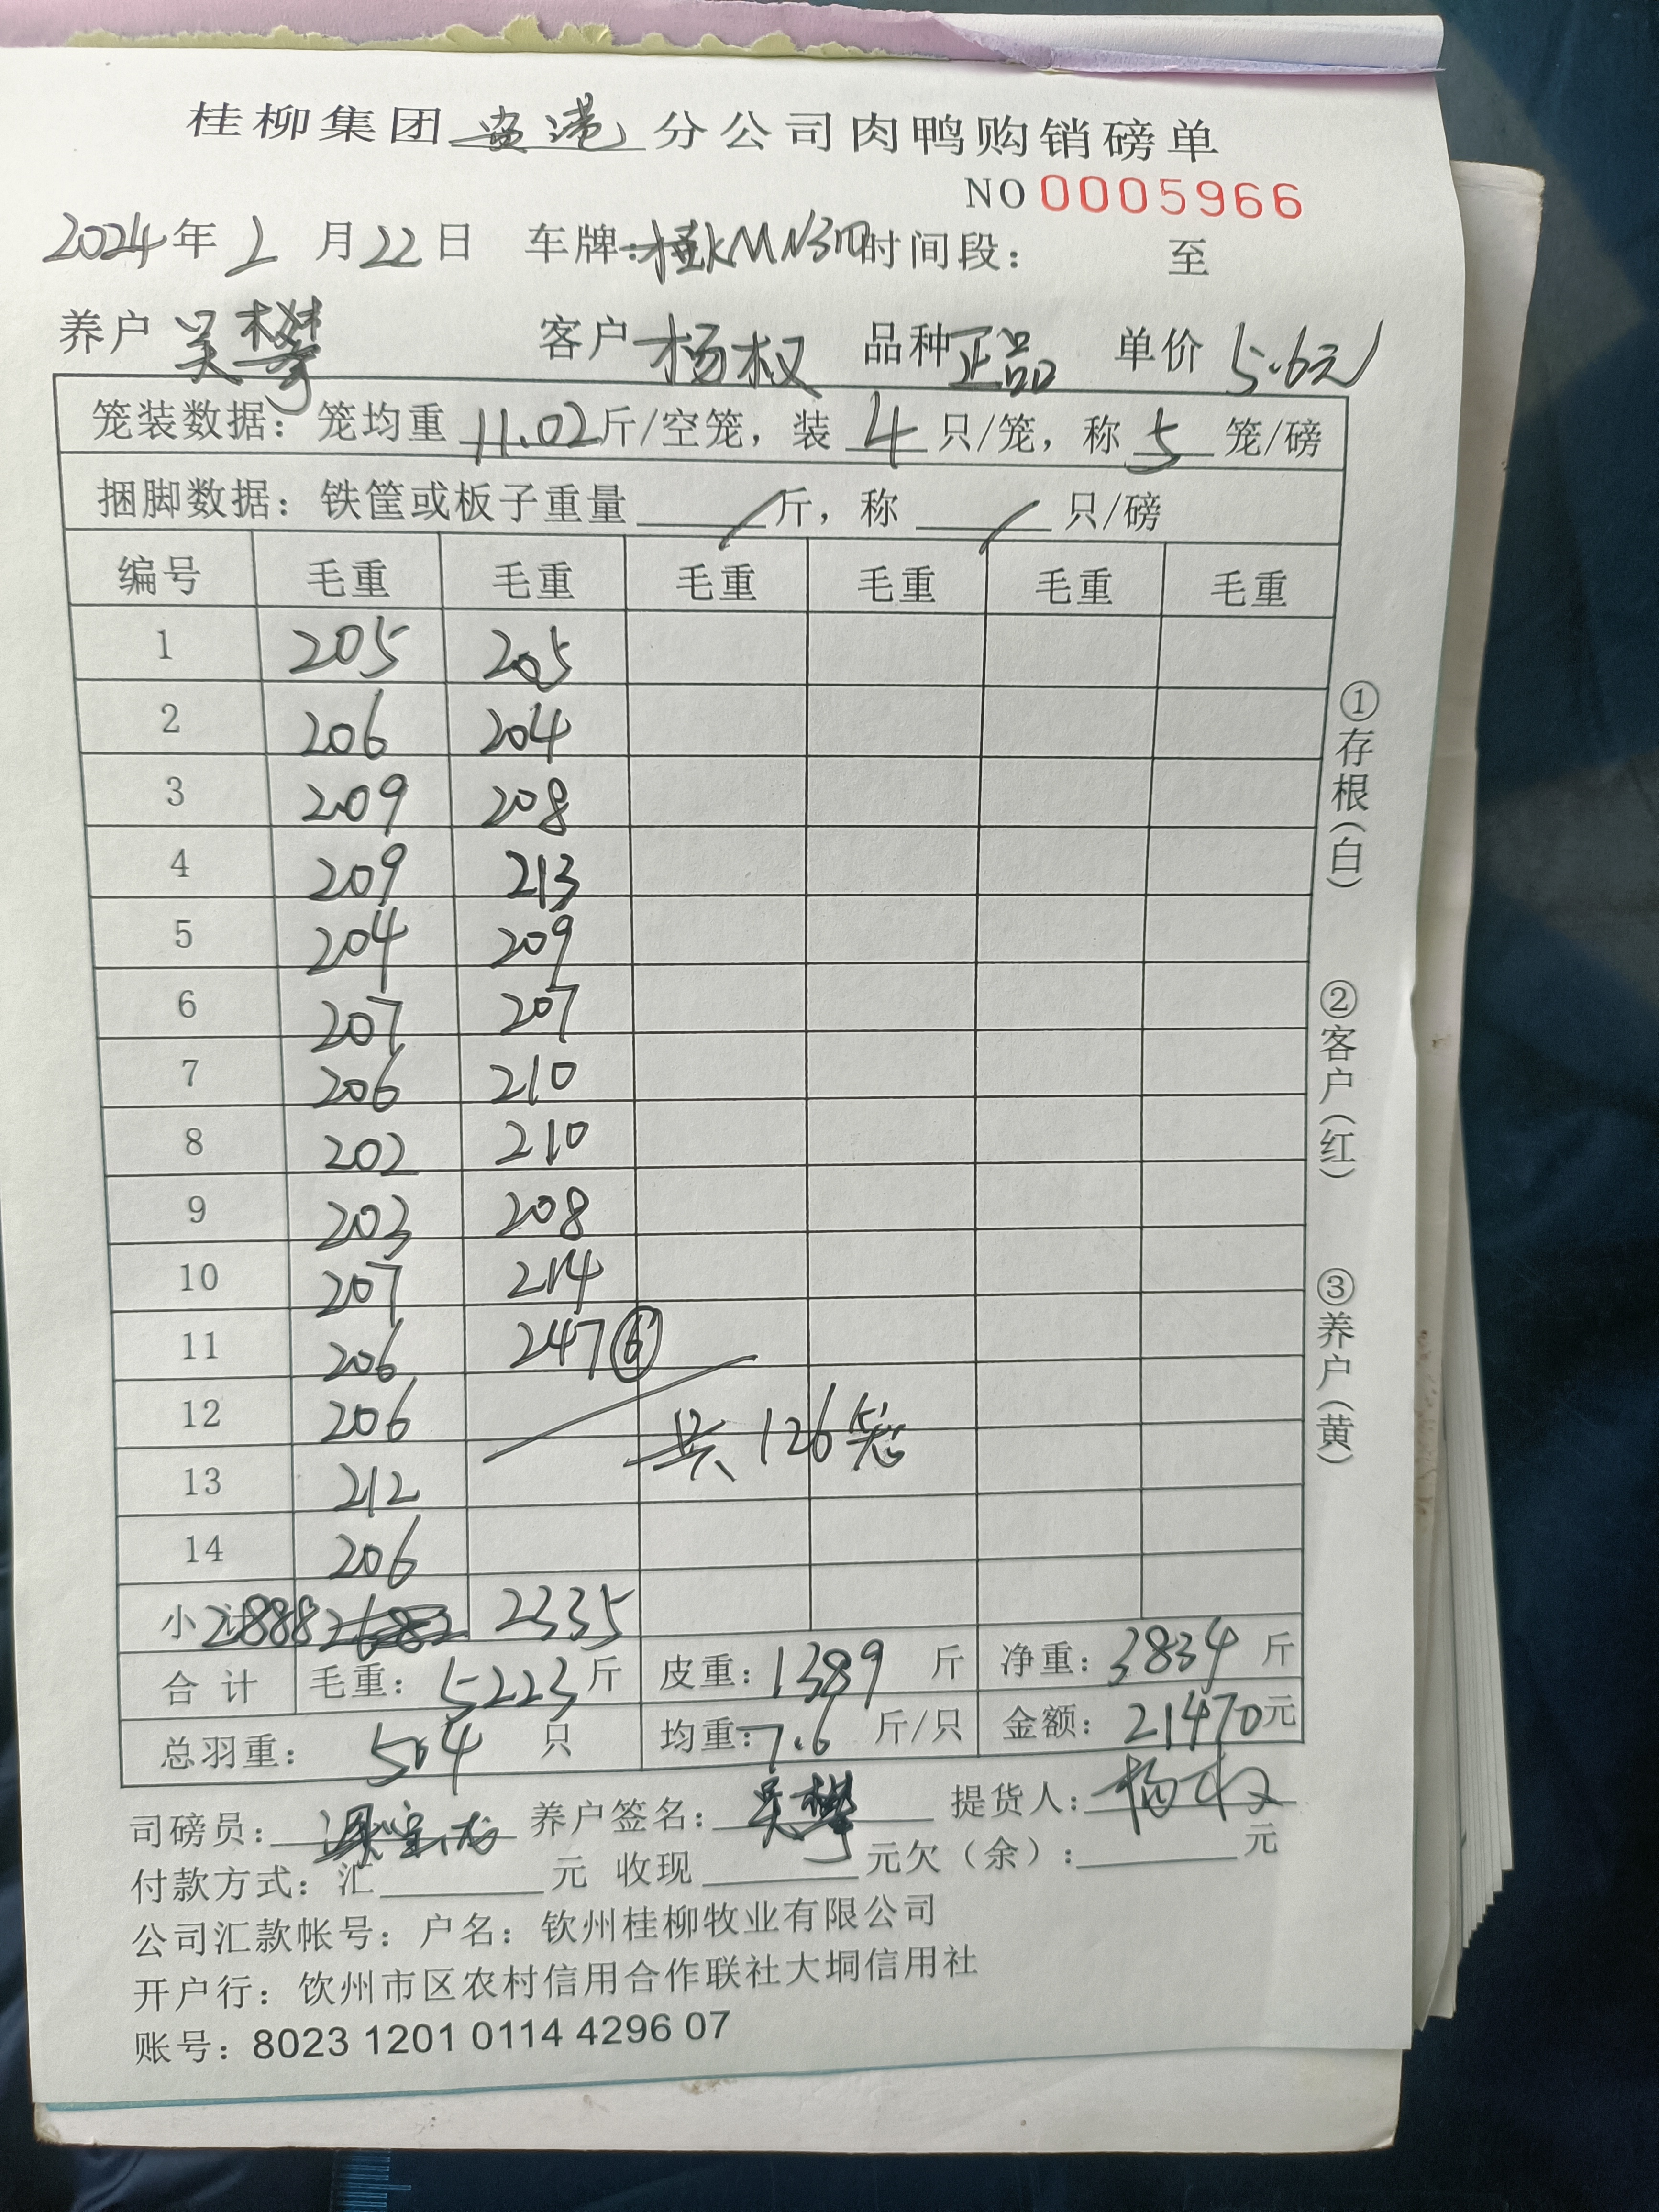 桂柳集团 贵港 分公司肉鸭购销磅单
NO 0005966
2024 年 2 月 22 日 车牌: 时间段: 至
养户 吴攀 客户 杨权 品种 正品 单价 5.6元
笼装数据: 笼均重 11.02 斤/空笼, 装 4 只/笼, 称 5 笼/磅
捆脚数据: 铁筐或板子重量 / 斤, 称 / 只/磅
编号 毛重 毛重 毛重 毛重 毛重 毛重
1 205 205
2 206 204
3 209 208
4 209 213
5 204 209
6 207 207
7 206 210
8 202 210
9 203 208
10 207 214
11 206 247 ⑥
12 206 共126笼
13 212
14 206
小计 2888 2682 2335
合计 毛重: 5223 斤 皮重: 1389 斤 净重: 3834 斤
总羽重: 504 只 均重: 7.6 斤/只 金额: 21470 元
司磅员: 养户签名: 吴攀 提货人: 杨权
付款方式: 汇 元 收现 元欠(余): 元
公司汇款帐号: 户名: 钦州桂柳牧业有限公司
开户行: 饮州市区农村信用合作联社大垌信用社
账号: 8023 1201 0114 4296 07
①存根(白)
②客户(红)
③养户(黄)